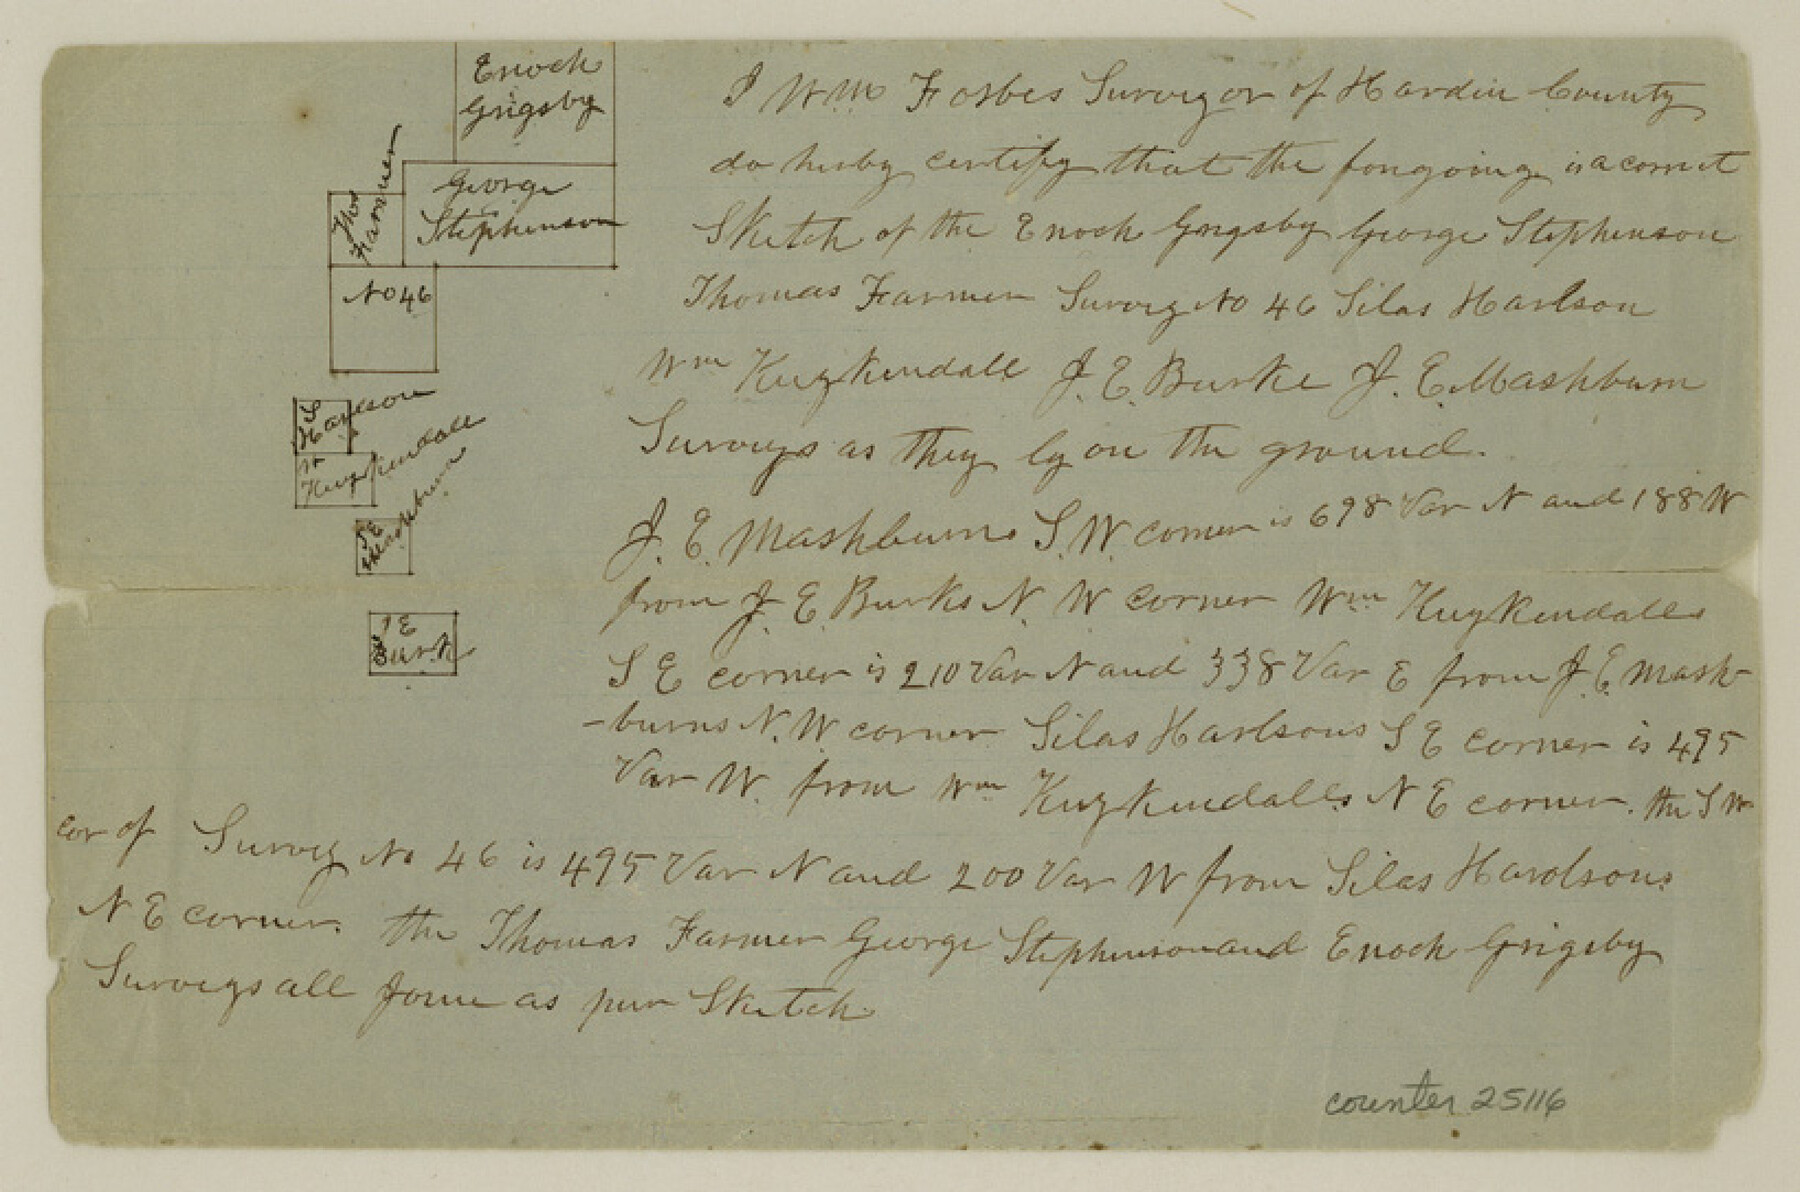 Enoch
Grigsby
Thos
Farmer
George
Stephenson
No 46
S
Harlson
W
Kuykendall
J E
Mashburn
J E
Burk
I Wm Forbes Surveyor of Hardin County
do herby certify that the forigoing is a correct
Sketch of the Enoch Grigsby George Stephenson
Thomas Farmer Survey No 46 Silas Harlson
Wm Kuykendall J. E. Burke J. E. Mashburn
Surveys as they ly on the ground.
J. E. Mashburns S. W. corner is 698 Var N and 188 W
from J. E. Burks N. W corner Wm Kuykendalls
S E corner is 210 Var N and 338 Var E from J. E. Mash-
-burns N. W corner Silas Harlsons S E corner is 495
Var W. from Wm Kuykendalls N E corner. the S W
cor of Survey No 46 is 495 Var N and 200 Var W from Silas Harolsons
N E corner. the Thomas Farmer George Stephenson and Enoch Grigsby
Surveys all Joine as pur Sketch.
counter 25116